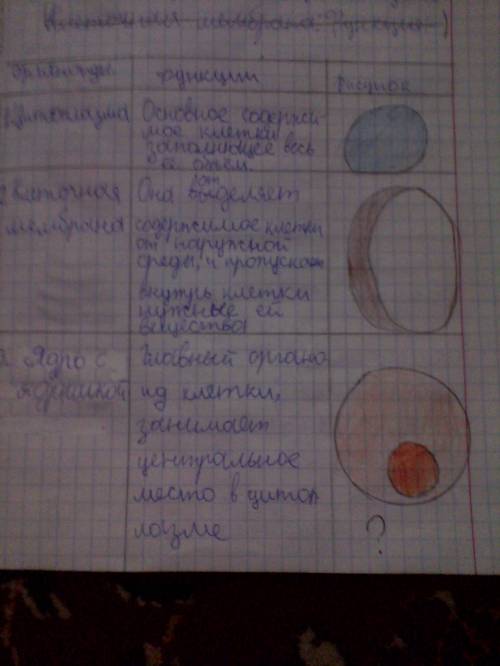 Клеточная мембрана. Функции )
Органоиды функции Рисунок
1. Цитоплазма
Основное содержи-
мое клетки
заполняющее весь
её объём.
2 Клеточная
мембрана
Она отделяет
содержимое клетки
от наружной
среды, и пропускает
внутрь клетки
нужные ей
вещества
3. Ядро с
ядрышкой
Главный органо
ид клетки,
занимает
центральное
место в цитоп
лозме
?